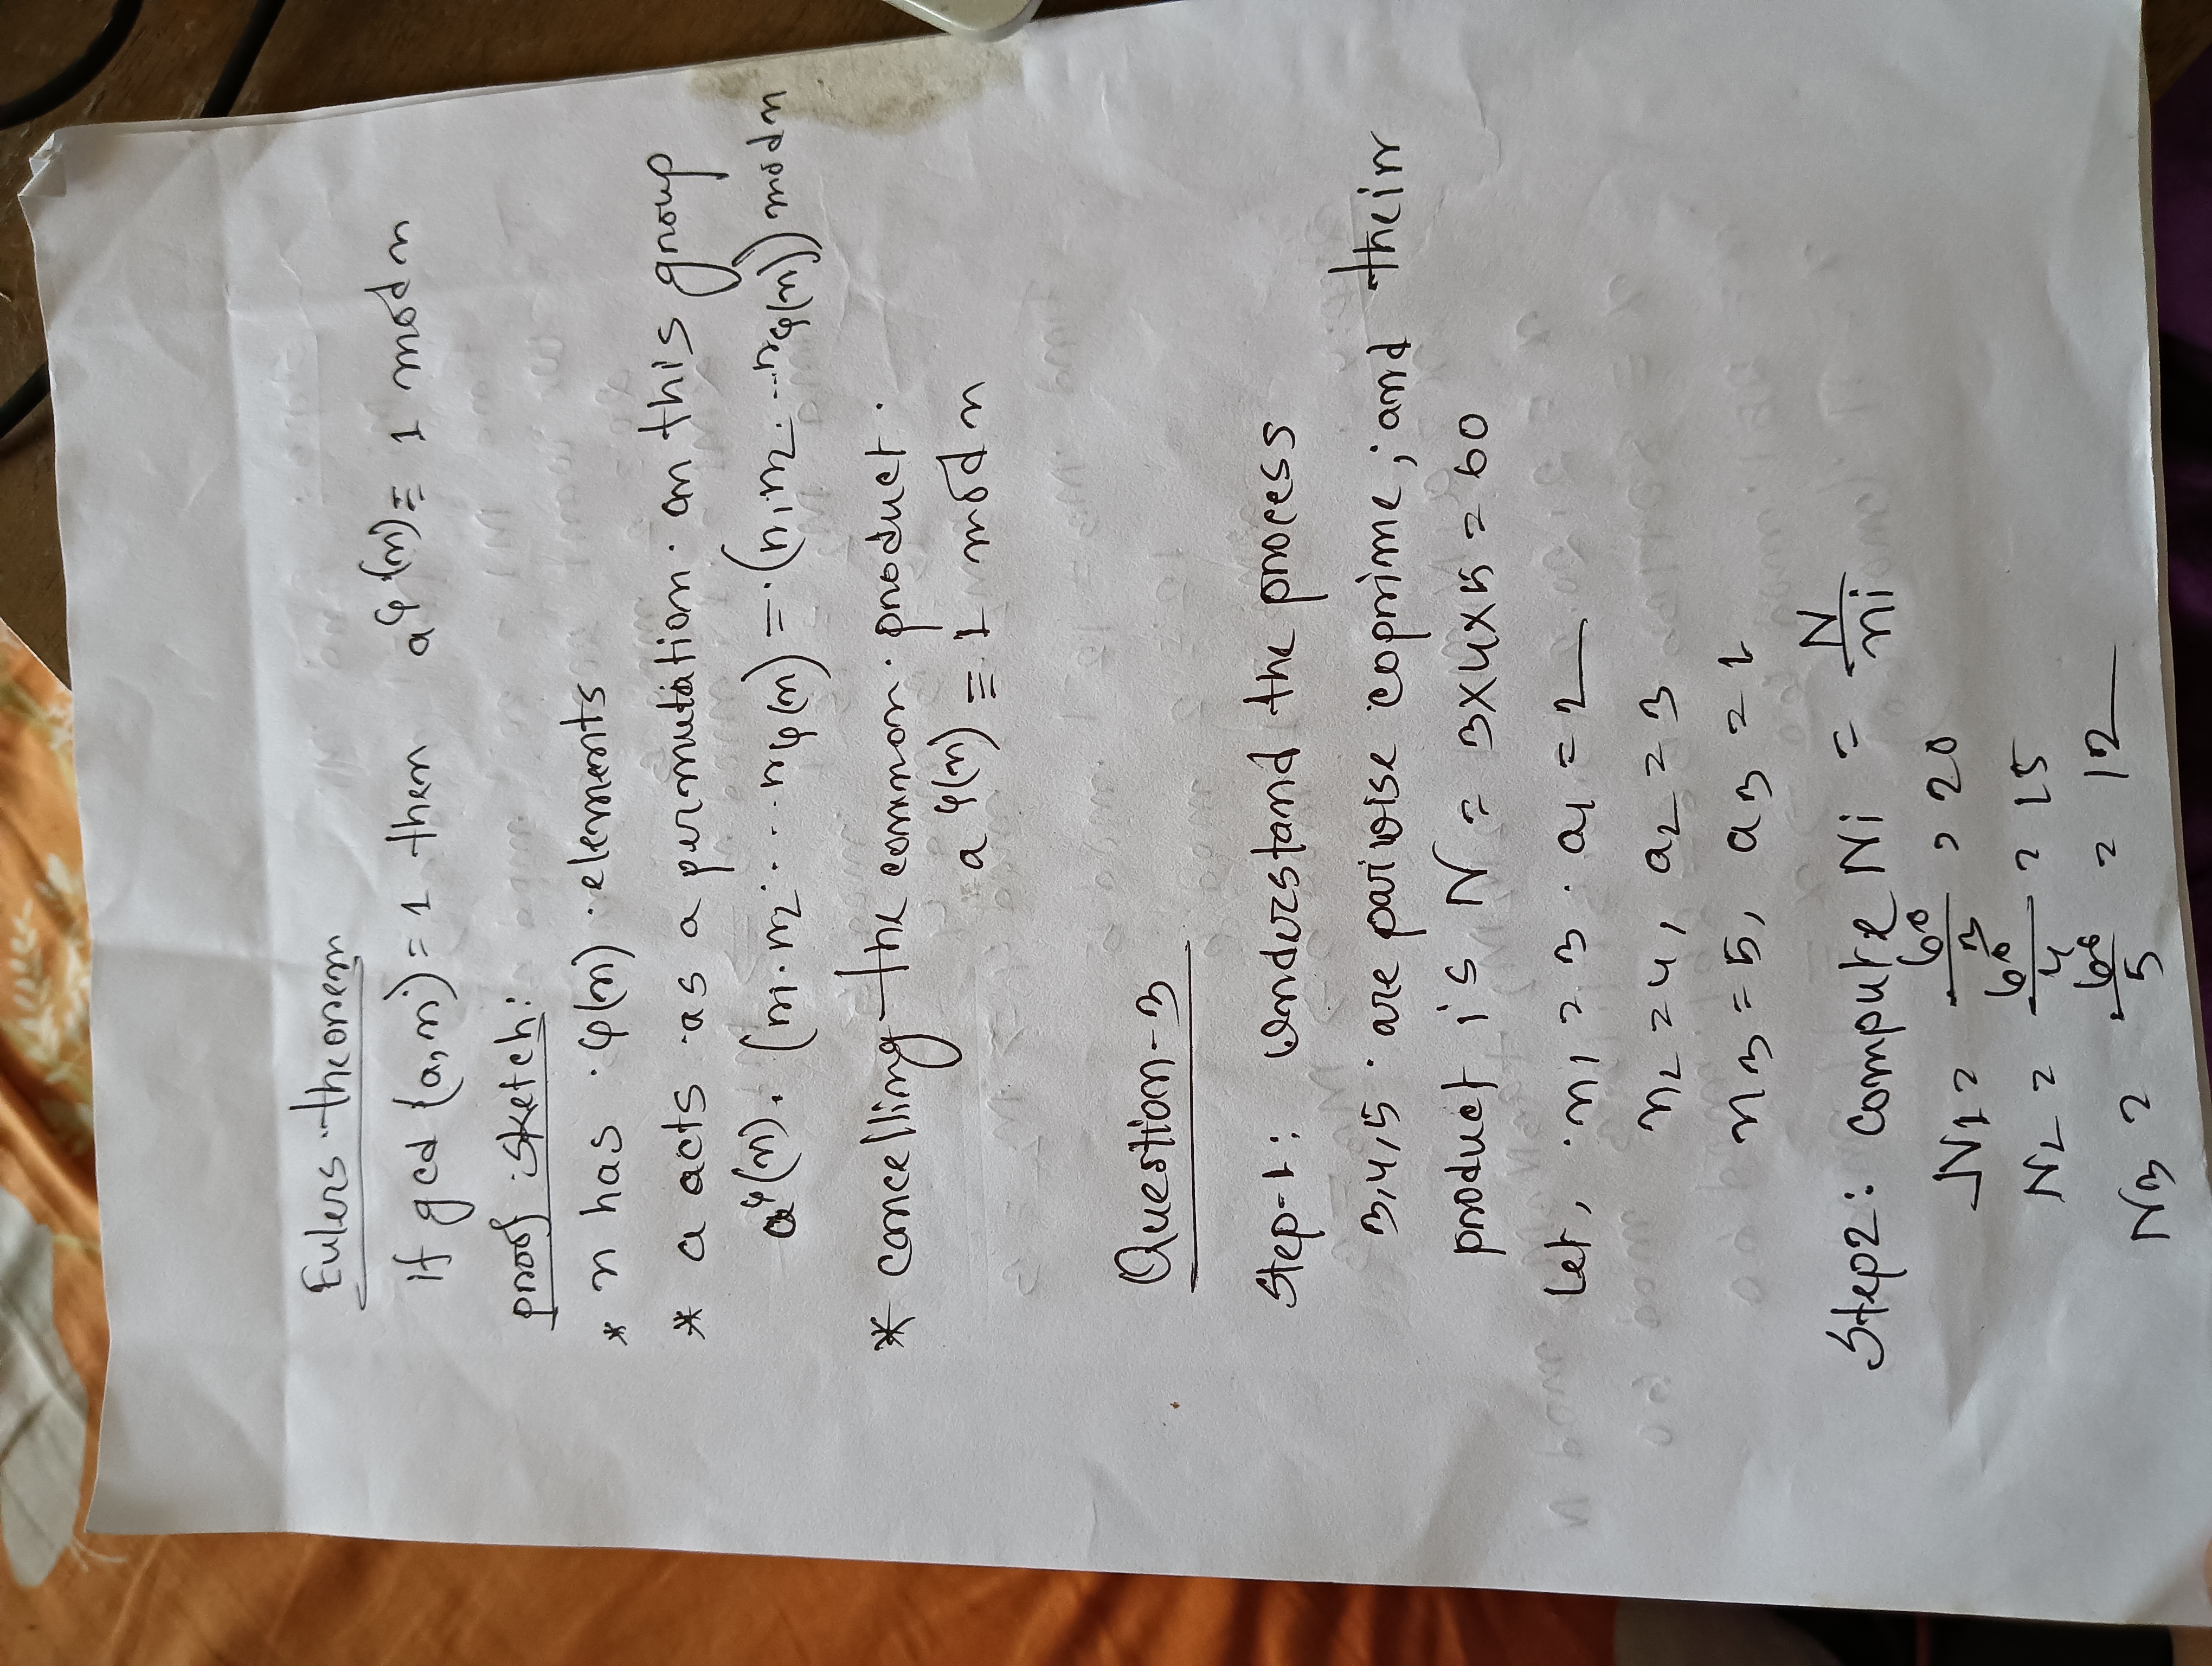 Eulers theorem
If gcd (a,n) = 1 then a^φ(n) ≡ 1 mod n
proof sketch:
* n has φ(n) elements
* a acts as a permutation on this group
a^φ(n). (r1.r2... rφ(n)) = (r1r2...rφ(n)) mod n
* cancelling the common product.
a^φ(n) ≡ 1 mod n
Question-3
Step-1: Understand the process
3,4,5 are pairwise coprime, and their
product is N = 3x4x5 = 60
Let, n1 = 3. a1 = 2
n2 = 4, a2 = 3
n3 = 5, a3 = 1
Step2: compute Ni = N/ni
N1 = 60/3 = 20
N2 = 60/4 = 15
N3 = 60/5 = 12